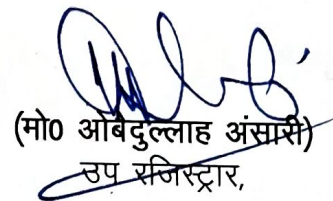 (मो0 ओबैदुल्लाह अंसारी)
उप रजिस्ट्रार,